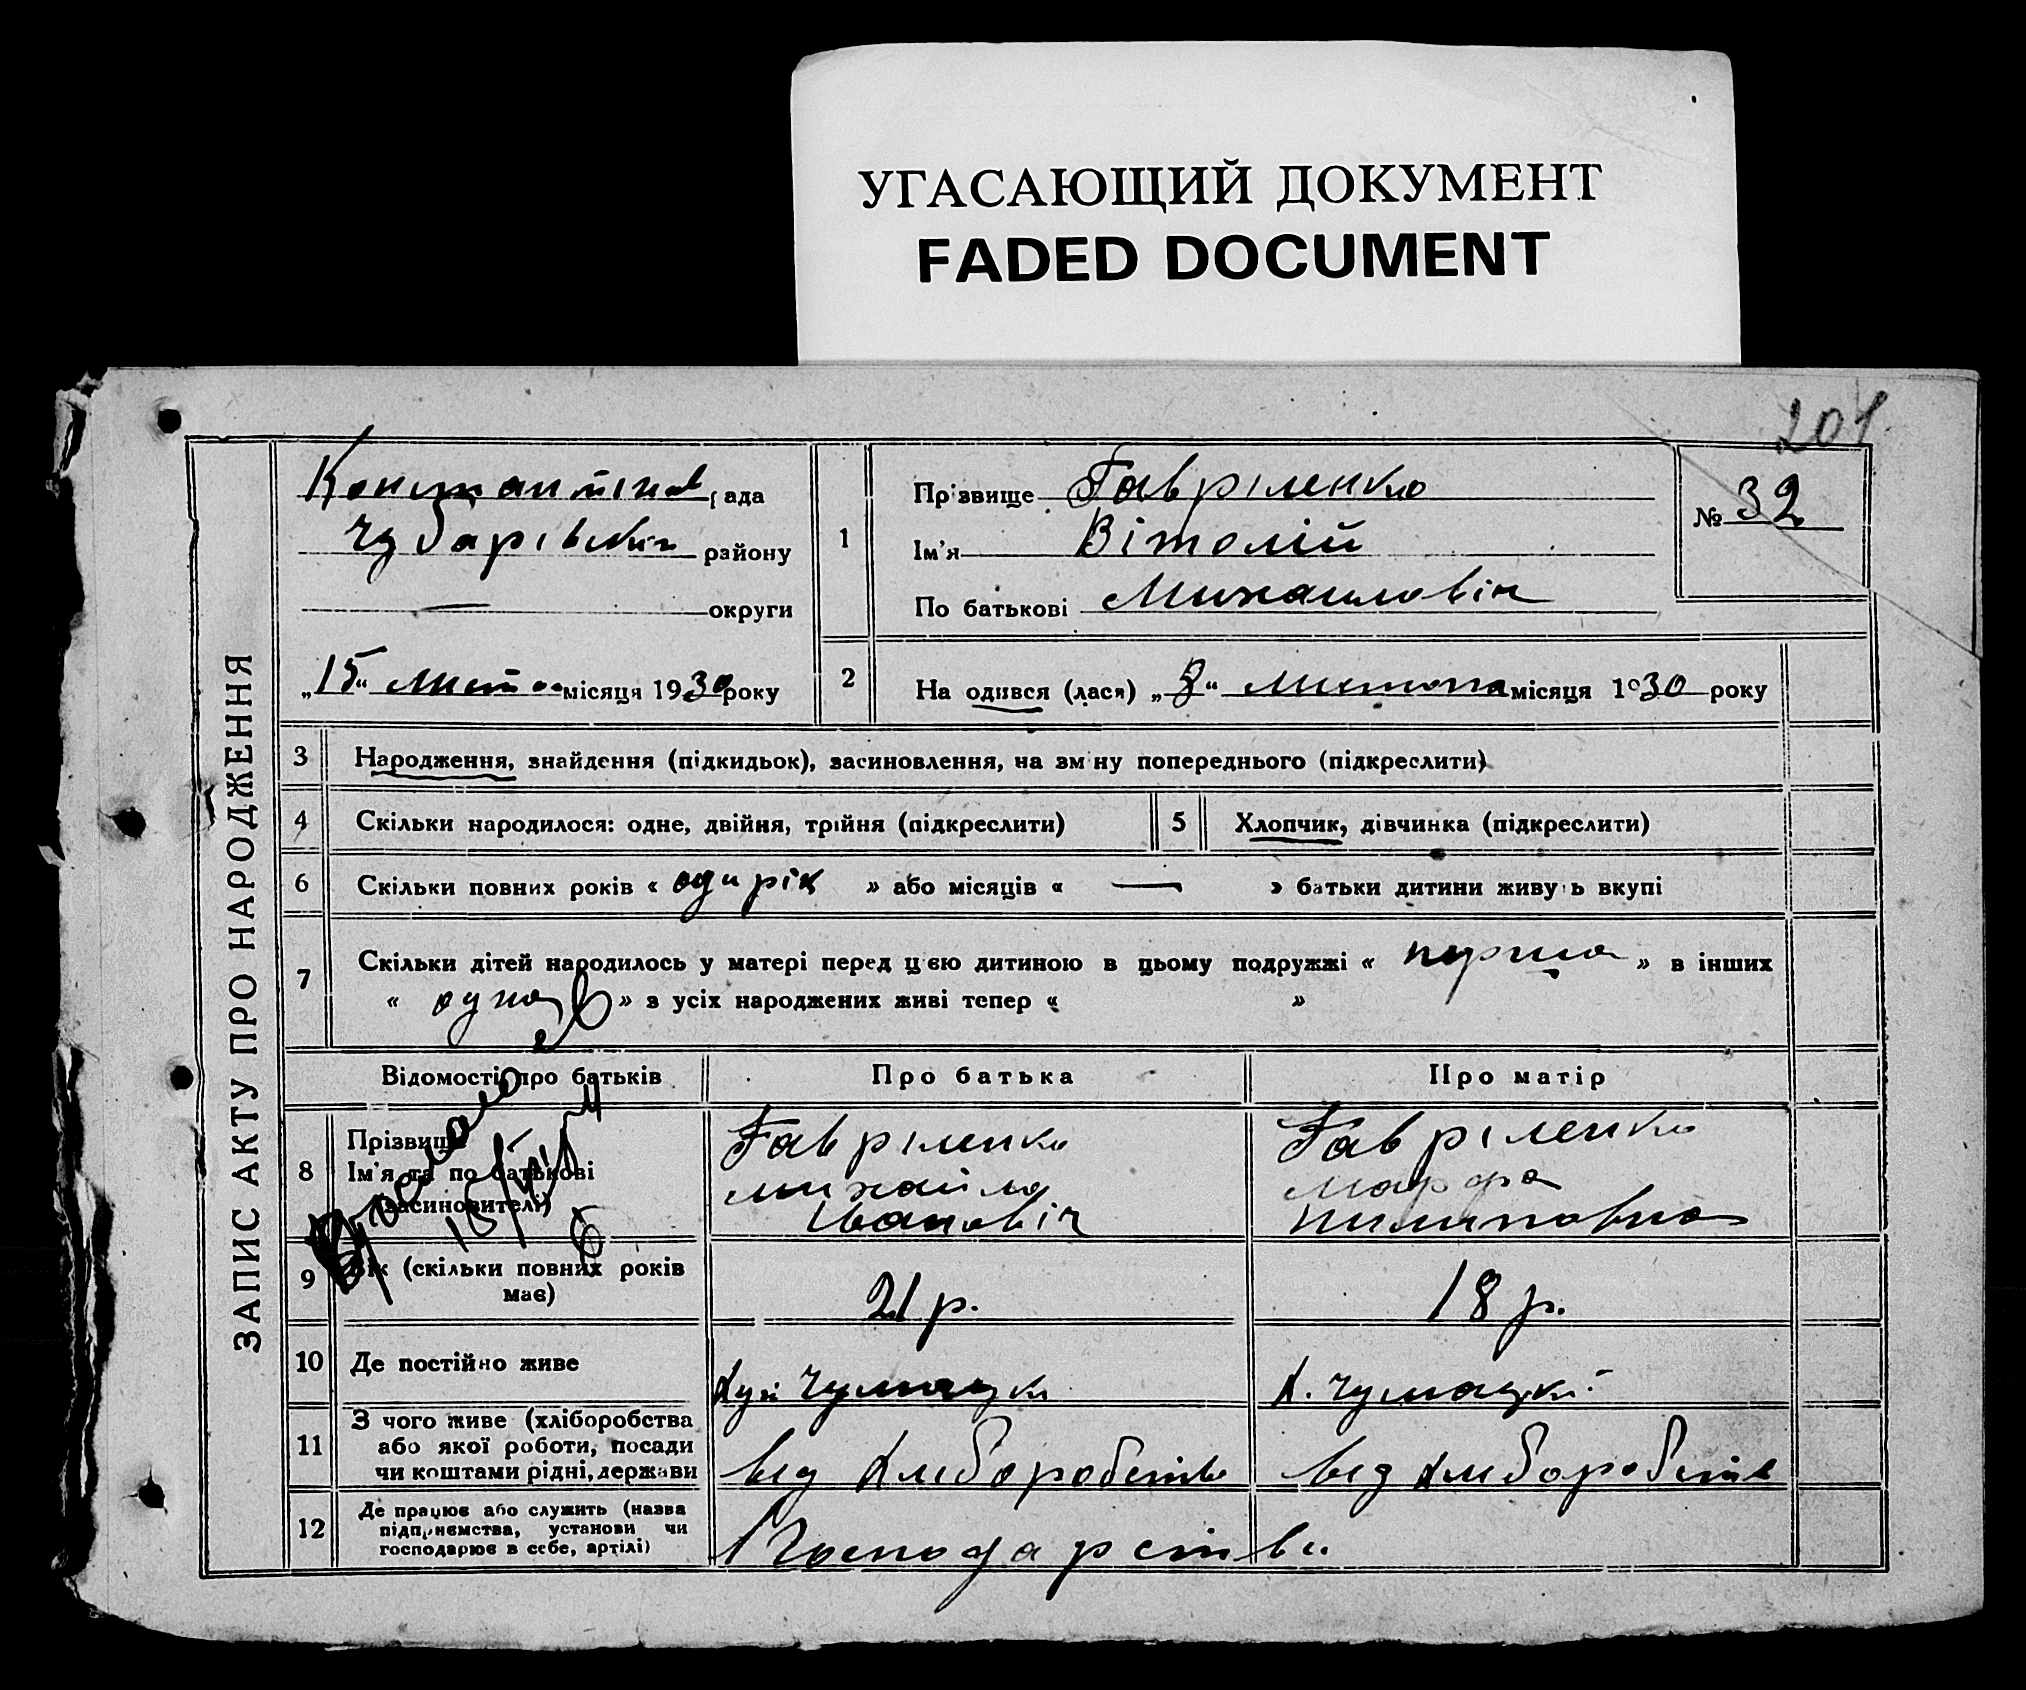 УГАСАЮЩИЙ ДОКУМЕНТ
FADED DOCUMENT
201
ЗАПИС АКТУ ПРО НАРОДЖЕННЯ
Константінов рада
Чубарівськи району
— округи
„15“ листоп місяця 1930 року
1
Прізвище Гавріленко
Ім'я Вітолій
По батькові Михаиловіч
№ 32
2
На одився (лася) „8“ листопа місяця 1930 року
3 Народження, знайдення (підкидьок), засиновлення, на зм ну попереднього (підкреслити)
4 Скільки народилося: одне, двійня, трійня (підкреслити)
5 Хлопчик, дівчинка (підкреслити)
6 Скільки повних років « оди рік » або місяців « — » батьки дитини живу ь вкупі
7 Скільки дітей народилось у матері перед цією дитиною в цьому подружжі « перша » в інших
« одна » з усіх народжених живі тепер « »
Відомості про батьків
Про батька
Про матір
8 Прізвище
Ім'я та по батькові
(засиновителі)
Гавріленко
Михайло
Івановіч
Гавріленко
Марфа
Пилиповна
9 Вік (скільки повних років
має)
21 р.
18 р.
10 Де постійно живе
Хут Чумацки
Х. Чумацкі
11 З чого живе (хліборобства
або якої роботи, посади
чи коштами рідні, держави
від хліборобств
від хліборобств
12 Де працює або служить (назва
підприємства, установи чи
господарює в себе, артілі)
Господарстві